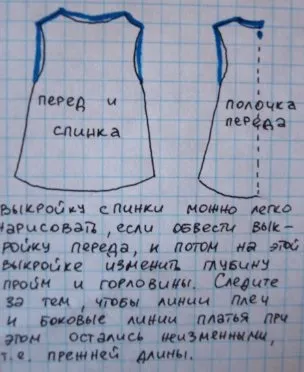 перед и
спинка
полочка
переда
Выкройку спинки можно легко
нарисовать, если обвести вык-
ройку переда, и потом на этой
выкройке изменить глубину
пройм и горловины. Следите
за тем, чтобы линии плеч
и боковые линии платья при
этом остались неизменными,
т.е. прежней длины.